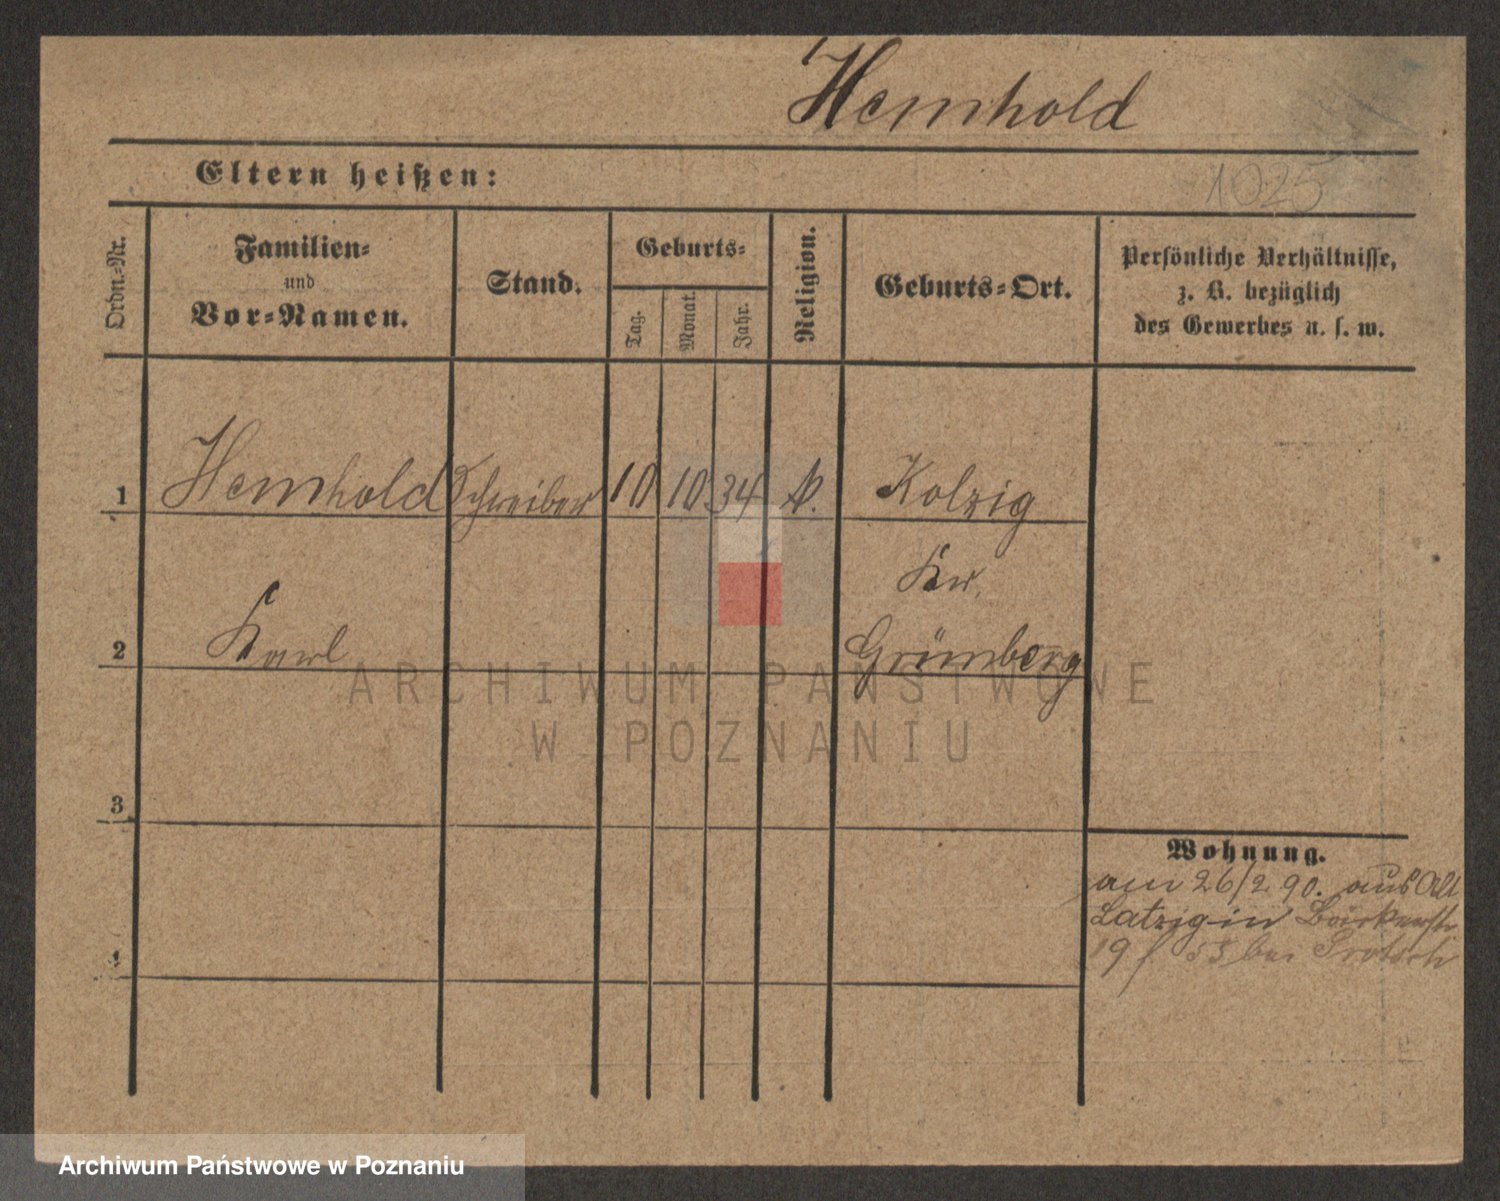 Hemhold
1025
Eltern heißen:
Ordn.-Nr.
Familien-
und
Vor-Namen.
Stand.
Geburts-
Tag.
Monat.
Jahr.
Religion.
Geburts-Ort.
Persönliche Verhältnisse,
z. B. bezüglich
des Gewerbes u. s. w.
1 Hemhold Schreiber 10 10 34 Kolzig
Kr.
2 Karl Grünberg
ARCHIWUM PAŃSTWOWE
W POZNANIU
3
Wohnung.
am 26/2 90. aus Alt
Latzig in
19 bei
4
Archiwum Państwowe w Poznaniu